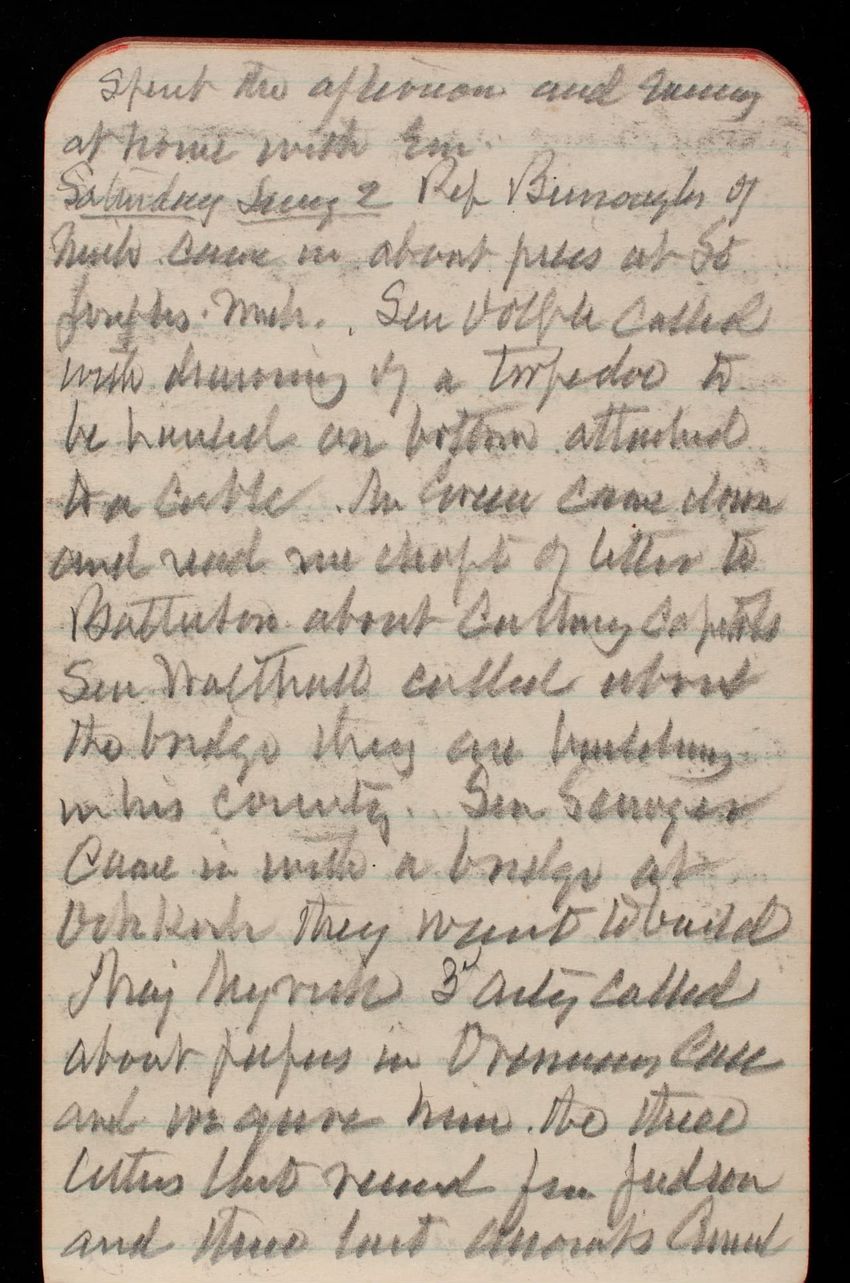 spent the afternoon and evening
at home with Em.
Saturday 2 Rep Burroughs of
Mich. came in about piers at St
Josephs. Mich. Sen called
with drawing of a torpedoe to
be on bottom attached
to a cable. Mr Green came down
and read me draft of letter to
Batterton about cutting capitals
Sen Walthall called about
the bridge they are building
in his county. Sen Sawyer
came in with a bridge at
Oshkosh they want to build
Maj Myrick 3d Arty called
about papers in case
and we gave him the three
letters last received from Judson
and three last